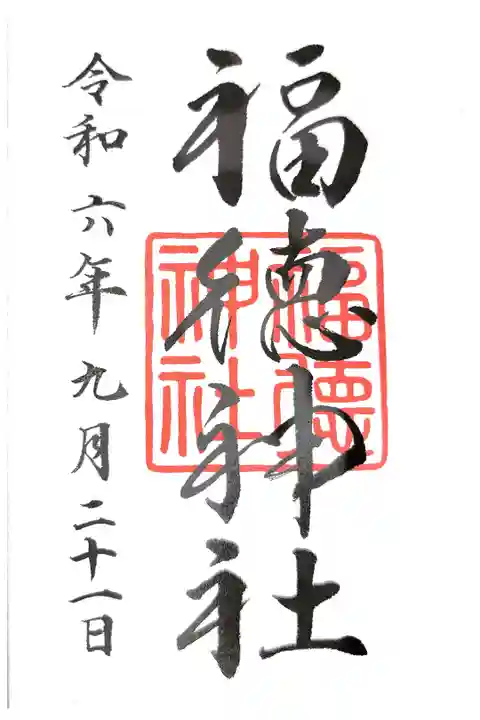 福徳神社
福德神社
令和六年九月二十一日